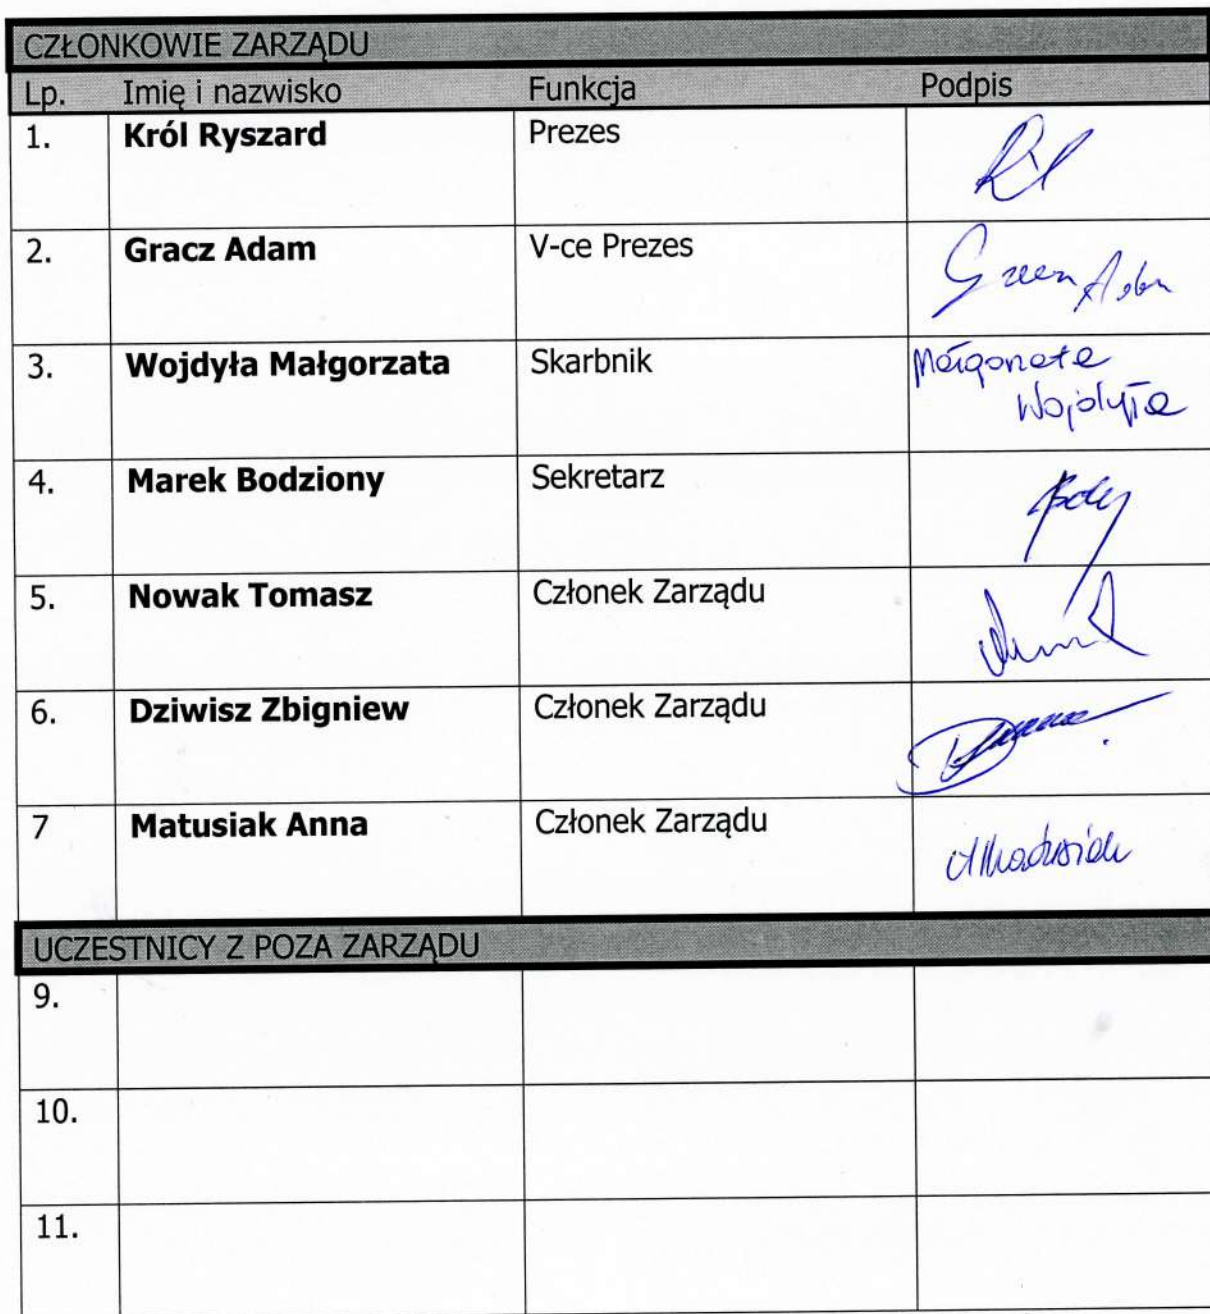 CZŁONKOWIE ZARZĄDU
Lp. Imię i nazwisko Funkcja Podpis
1. Król Ryszard Prezes
2. Gracz Adam V-ce Prezes
3. Wojdyła Małgorzata Skarbnik Małgorzata
Wojdyła
4. Marek Bodziony Sekretarz
5. Nowak Tomasz Członek Zarządu
6. Dziwisz Zbigniew Członek Zarządu
7 Matusiak Anna Członek Zarządu
UCZESTNICY Z POZA ZARZĄDU
9.
10.
11.